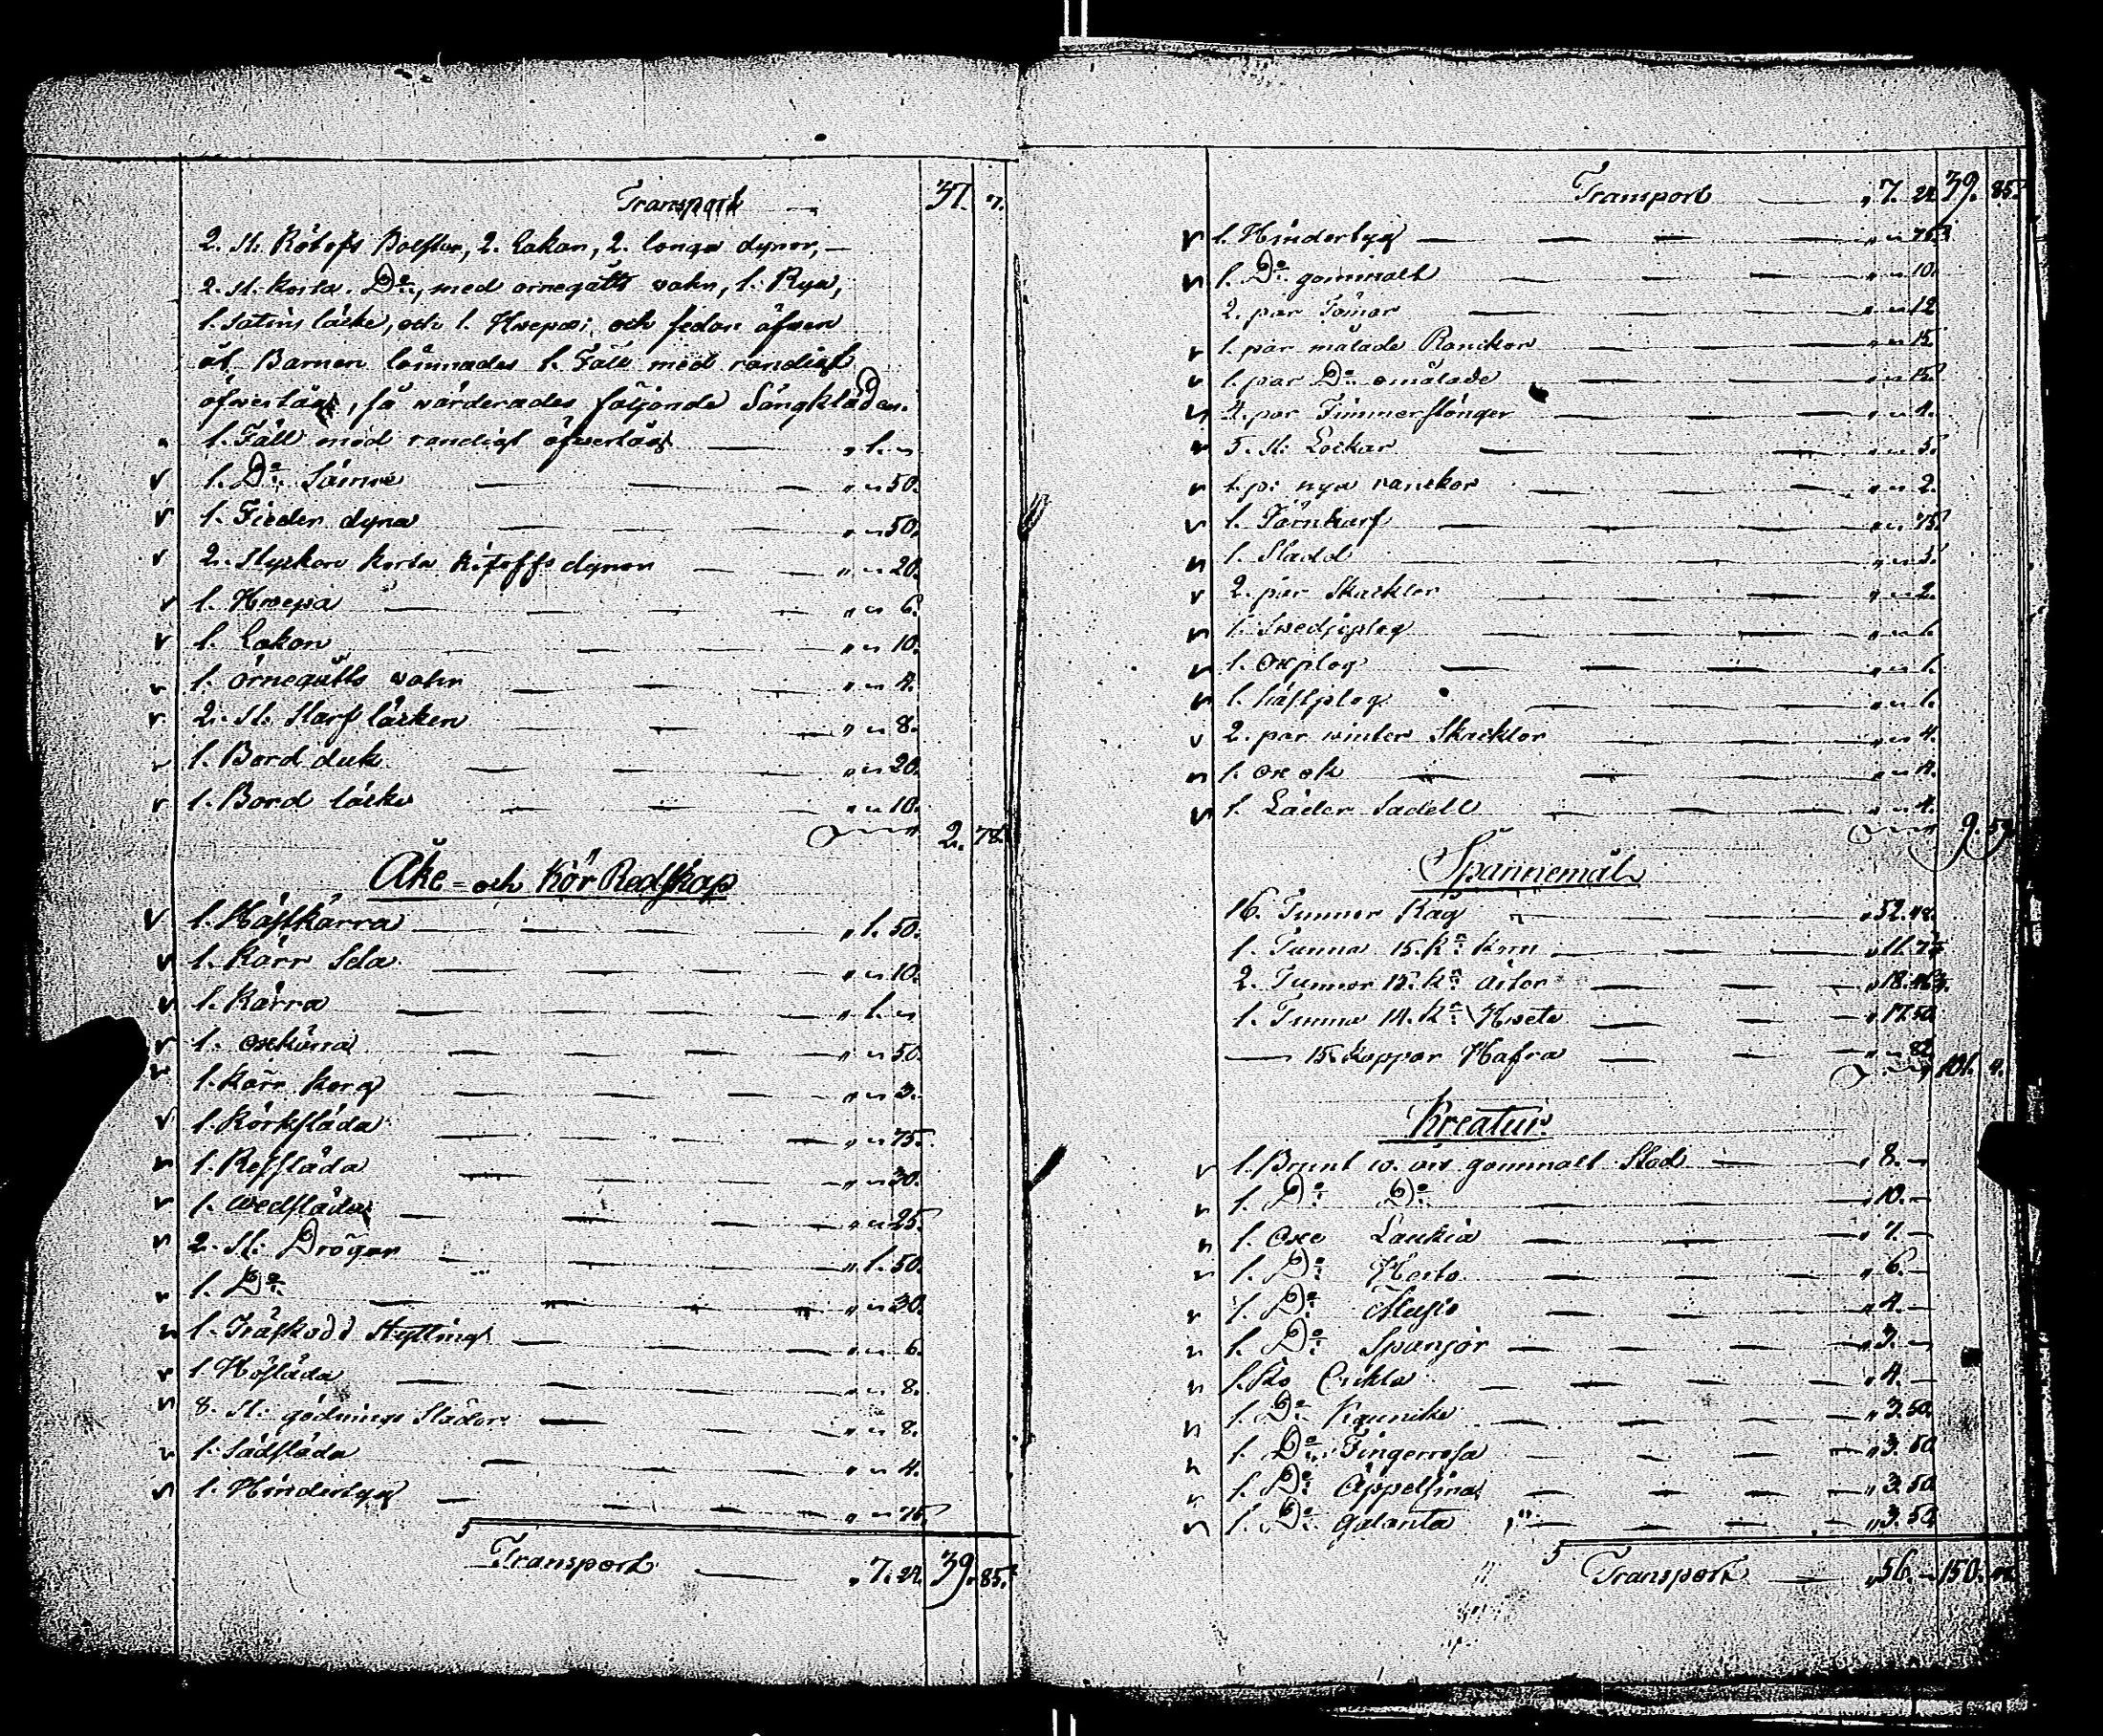 Transport — 37. 7.
2. st: Rötofs Bolstar, 2. Lakan, 2. långa dynor, —
2. st. korta Do:, med örnegåtts wahr, 1. Rya,
1. Satins täcke, och 1. Hwepa; och sedan äfwen
åt Barnen lämnades 1. Fäll med randigt
öfwertåg, så wärderades följande Sängkläder.
1. Fäll med randigt öfwertåg — „ 1. „
1. Do: Sämre — „ „ 50.
1. Fieder dyna — „ „ 50.
2. Stycken korta dynor — „ „ 20.
1. Hwepa — „ „ 6.
1. Lakan — „ „ 10.
1. örnegåtts wahr — „ „ 4.
2. st: täcken — „ „ 8.
1. Bord duk — „ „ 20.
1. Bord täcke — „ „ 10.
2. 78.
Åke= och Kör Redskap
1. Hästkärra — „ 1. 50.
1. Kärr Sela — „ „ 10.
1. Kärra — „ 1. „
1. Oxkärra — „ „ 50.
1. Kärr korg — „ „ 3.
1. Körksläda — „ „ 75.
1. Ressläda — „ „ 30.
1. Wedsläda — „ „ 25.
2. St: Drögar — „ 1. 50.
1. Do: — „ „ 30.
1. Träskodd Stytting — „ „ 6.
1. Hösläda — „ „ 8.
8. St: gödnings Slädor — „ „ 8.
1. Sädsläda — „ „ 4.
1. Hindertyg — „ „ 75.
Transport — „ 7. 24. 39. 85.
Transport — „ 7. 24. 39. 85.
1. Hindertyg — „ „ 75.
1. Do: gammalt — „ „ 10.
2. par Tömar — „ „ 12.
1. par målade Ranckor — „ „ 15.
1. par Do: omålade — „ „ 15.
4. par Timmerstänger — „ „ 4.
5. st: Lockar — „ „ 5.
1. p: nya ranckor — „ „ 2.
1. Järnharf — „ „ 75.
1. Sladd — „ „ 5.
2. par Skacklor — „ „ 2.
1. Swedjeplog — „ „ 1.
1. Oxplog — „ „ 1.
1. hästplog — „ „ 1.
2. par winter Skacklor — „ „ 4.
1. ox ok — „ „ 4.
1. Läder Sadell — „ „ 4.
9. 59.
Spannemål
16. Tunnor Råg — „ 52. 48.
1. Tunna 15. Kr: Korn — „ 11.
2. Tunnor 15. Kr: ärtor — „ 18.
1. Tunna 14. Kr: Hwete — „ 17. 50.
— 15. Kappar Hafra — „ „ 82.
101. 4.
Kreatur
1. Brunt gammalt Stod — „ 8. —
1. Do: Do: — „ 10. —
1. Oxe Laukia — „ 7. —
1. Do: Herto — „ 6. —
1. Do: — „ 4. —
1. Do: Spanjor — „ 3. —
1. Ko — „ 4. —
1. Do: Kaunike — „ 3. 50.
1. Do: Fingerrosa — „ 3. 50.
1. Do: Appelsina — „ 3. 50.
1. Do: Galanta — „ 3. 50.
Transport — „ 56. — 150.